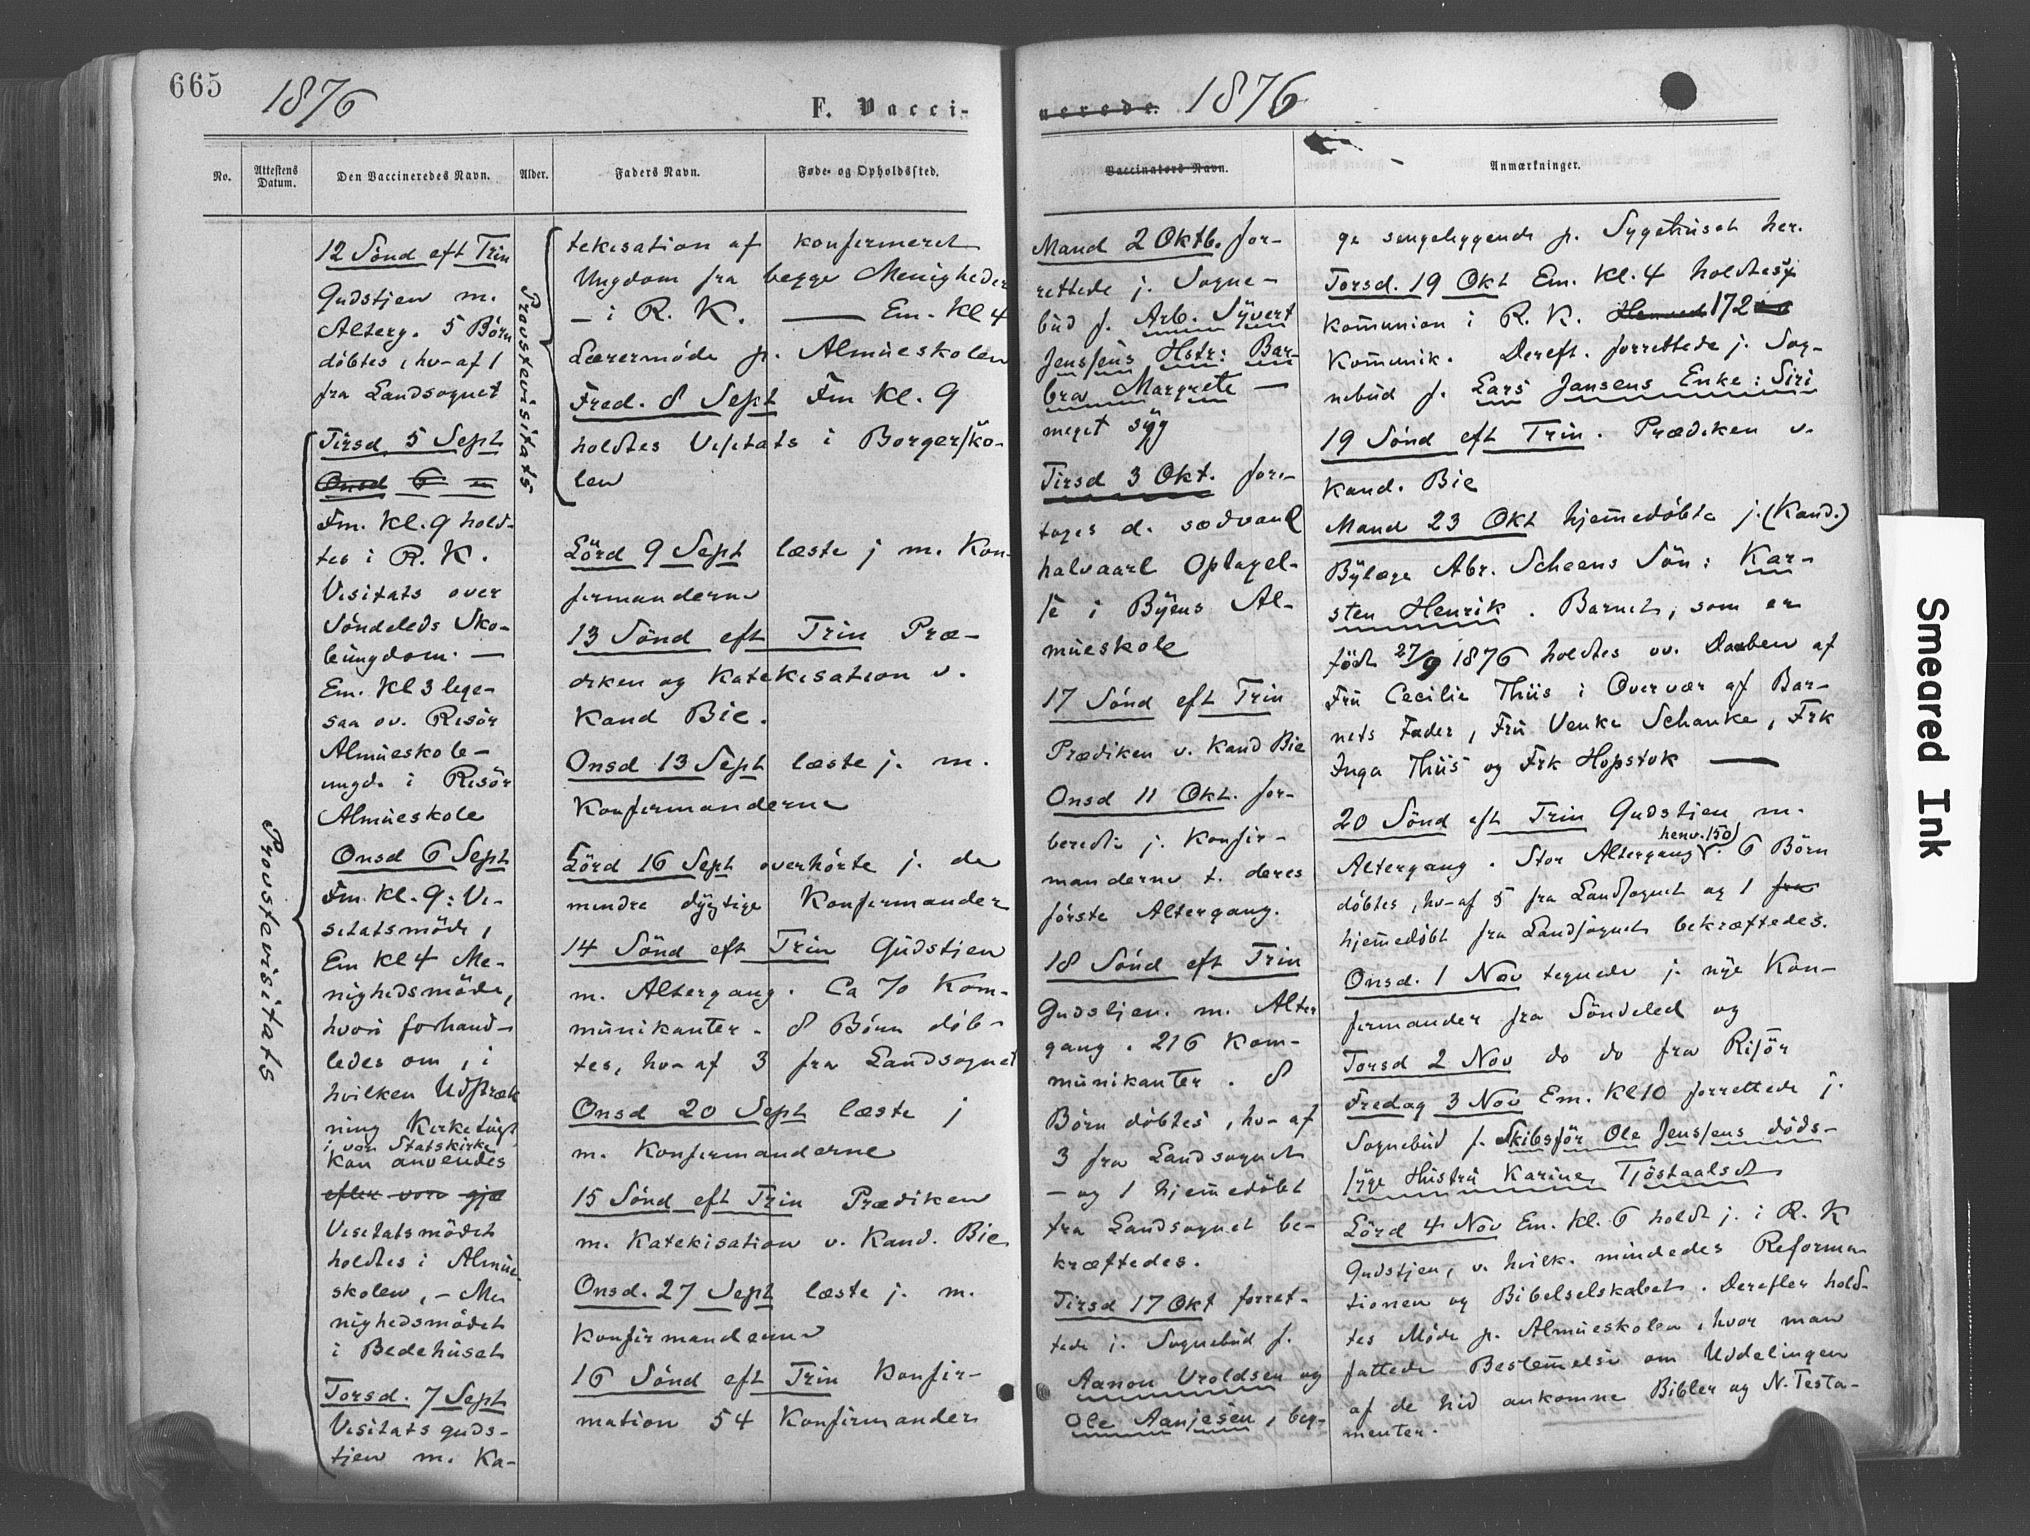 665
1876
F. Vacci-
nerede. 1876
No.
Attestens Datum.
Den Vaccineredes Navn.
Alder.
Faders Navn.
Føde- og Opholdssted.
Vaccinators Navn.
Anmærkninger.
12 Sönd eft Trin
Gudstjen m.
Alterg. 5 Børn
döbtes, hv-af 1
fra Landsognet
Tirsd. 5 Sept
Onsd 6 "
Fm. Kl. 9 hold-
tes i R. K.
Visitats over
Söndeleds Sko-
leüngdom. —
Em. Kl 3 lige-
saa ov. Risör
Almüeskole-
ungd. i Risör
Almüeskole
Onsd 6 Sept
Fm. Kl. 9: Vi-
sitatsmöde,
Em Kl 4 Me-
nighedsmöde,
hvori forhand-
ledes om, i
hvilken Udstræk
ning Kirketügt
i vor Statskirke
kan anvendes
efter vore gjæ
Visitatsmödet
holdtes i Almüe-
skolen, - Me
nighedsmödet
i Bedehüset
Torsd. 7 Sept
Visitatsguds-
tjen m. Ka-
Provstevisitats
Provstevisitats
tekisation af konfirmeret
Ungdom fra begge Menigheder
— i R. K. — Em. Kl 4
Lærermöde p. Almüeskolen
Fred. 8 Sept Fm Kl. 9
holdtes Visitats i Borgersko-
len
Lörd 9 Sept læste j m. Kon-
firmanderne
13 Sönd eft Trin Præ-
diken og Katekisation v.
Kand Bie.
Onsd 13 Sept læste j. m.
Konfirmanderne
Lörd 16 Sept overhörte j. de
mindre dÿgtige Konfirmander
14 Sönd eft Trin Güdstjen
m. Altergang. Ca 70 Kom-
münikanter. 8 Börn döb-
tes, hv-af 3 fra Landsognet
Onsd 20 Sept læste j
m. Konfirmanderne
15 Sönd eft Trin Prædiken
m. Katekisation v. Kand. Bie
Onsd. 27 Sept læste j. m.
Konfirmanderne
16 Sönd eft Trin Konfir-
mation 54 Konfirmander
Mand 2 Oktb. for-
rettede j. Sogne-
büd f. Arb. Sÿvert
Jenssens Hstr: Bar-
bra Margrete —
meget sÿg
Tirsd 3 Okt. fore-
toges d. sædvanl
halvaarl Optagel-
se i Bÿens Al-
müeskole
17 Sönd eft Trin
Prædiken v. Kand Bie
Onsd 11 Okt. for-
beredte j. Konfir-
manderne t. deres
förste Altergang.
18 Sönd eft Trin
Gudstjen. m. Alter
gang. 216 Kom-
münikanter. 8
Börn döbtes, hv-af
3 fra Landsognet
— og 1 hjem̅edöbt
fra Landsognet be-
kræftedes.
Tirsd 17 Okt forret-
tede j. Sognebüd f.
Aanon Uroldsen og
Ole Aanjesen, beg-
ge sengeliggende p. Sygehüset her.
Torsd. 19 Okt Em. Kl. 4 holdtes
Kom̅union i R. K. Henved 172
Kom̅unik. Dereft. forrettede j. Sog-
nebüd f. Lars Jansens Enke: Siri
19 Sönd eft Trin. Prædiken v.
Kand. Bie
Mand 23 Okt hjem̅edöbte j. (Kand.)
Bÿlæge Abr. Scheens Sön: Kar-
sten Henrik. Barnet, som er
född 27/9 1876 holdtes ov. Daaben af
Frü Cecilie Thiis i Overvær af Bar-
nets Fader, Frü Venke Schanke, Frk
Inga Thiis og Frk Hopstok —
20 Sönd eft Trin Gudstjen m.
Altergang. Stor Altergang (henv. 150). 6 Börn
döbtes, hv-af 5 fra Landsognet og 1 fra
hjem̅edöbt fra Landsognet bekræftedes.
Onsd. 1 Nov tegnede j. nÿe Kon-
firmander fra Söndeled og
Torsd 2 Nov do do fra Risör
Fredag 3 Nov Em. Kl 10 forrettede j.
Sognebüd f. Skibsför Ole Jenssens döds-
sÿge Hüstrü Karine Tjöstaalsdt
Lörd 4 Nov Em. Kl. 6 holdt j. i R. K
Gudstjen, v. hvilk. mindedes Reforma
tionen og Bibelselskabet. Derefter hold-
tes Möde p. Almüeskolen, hvor man
fattede Bestem̅else om Uddelingen
af de hid ankomne Bibler og N. Testa-
menter.
Smeared Ink